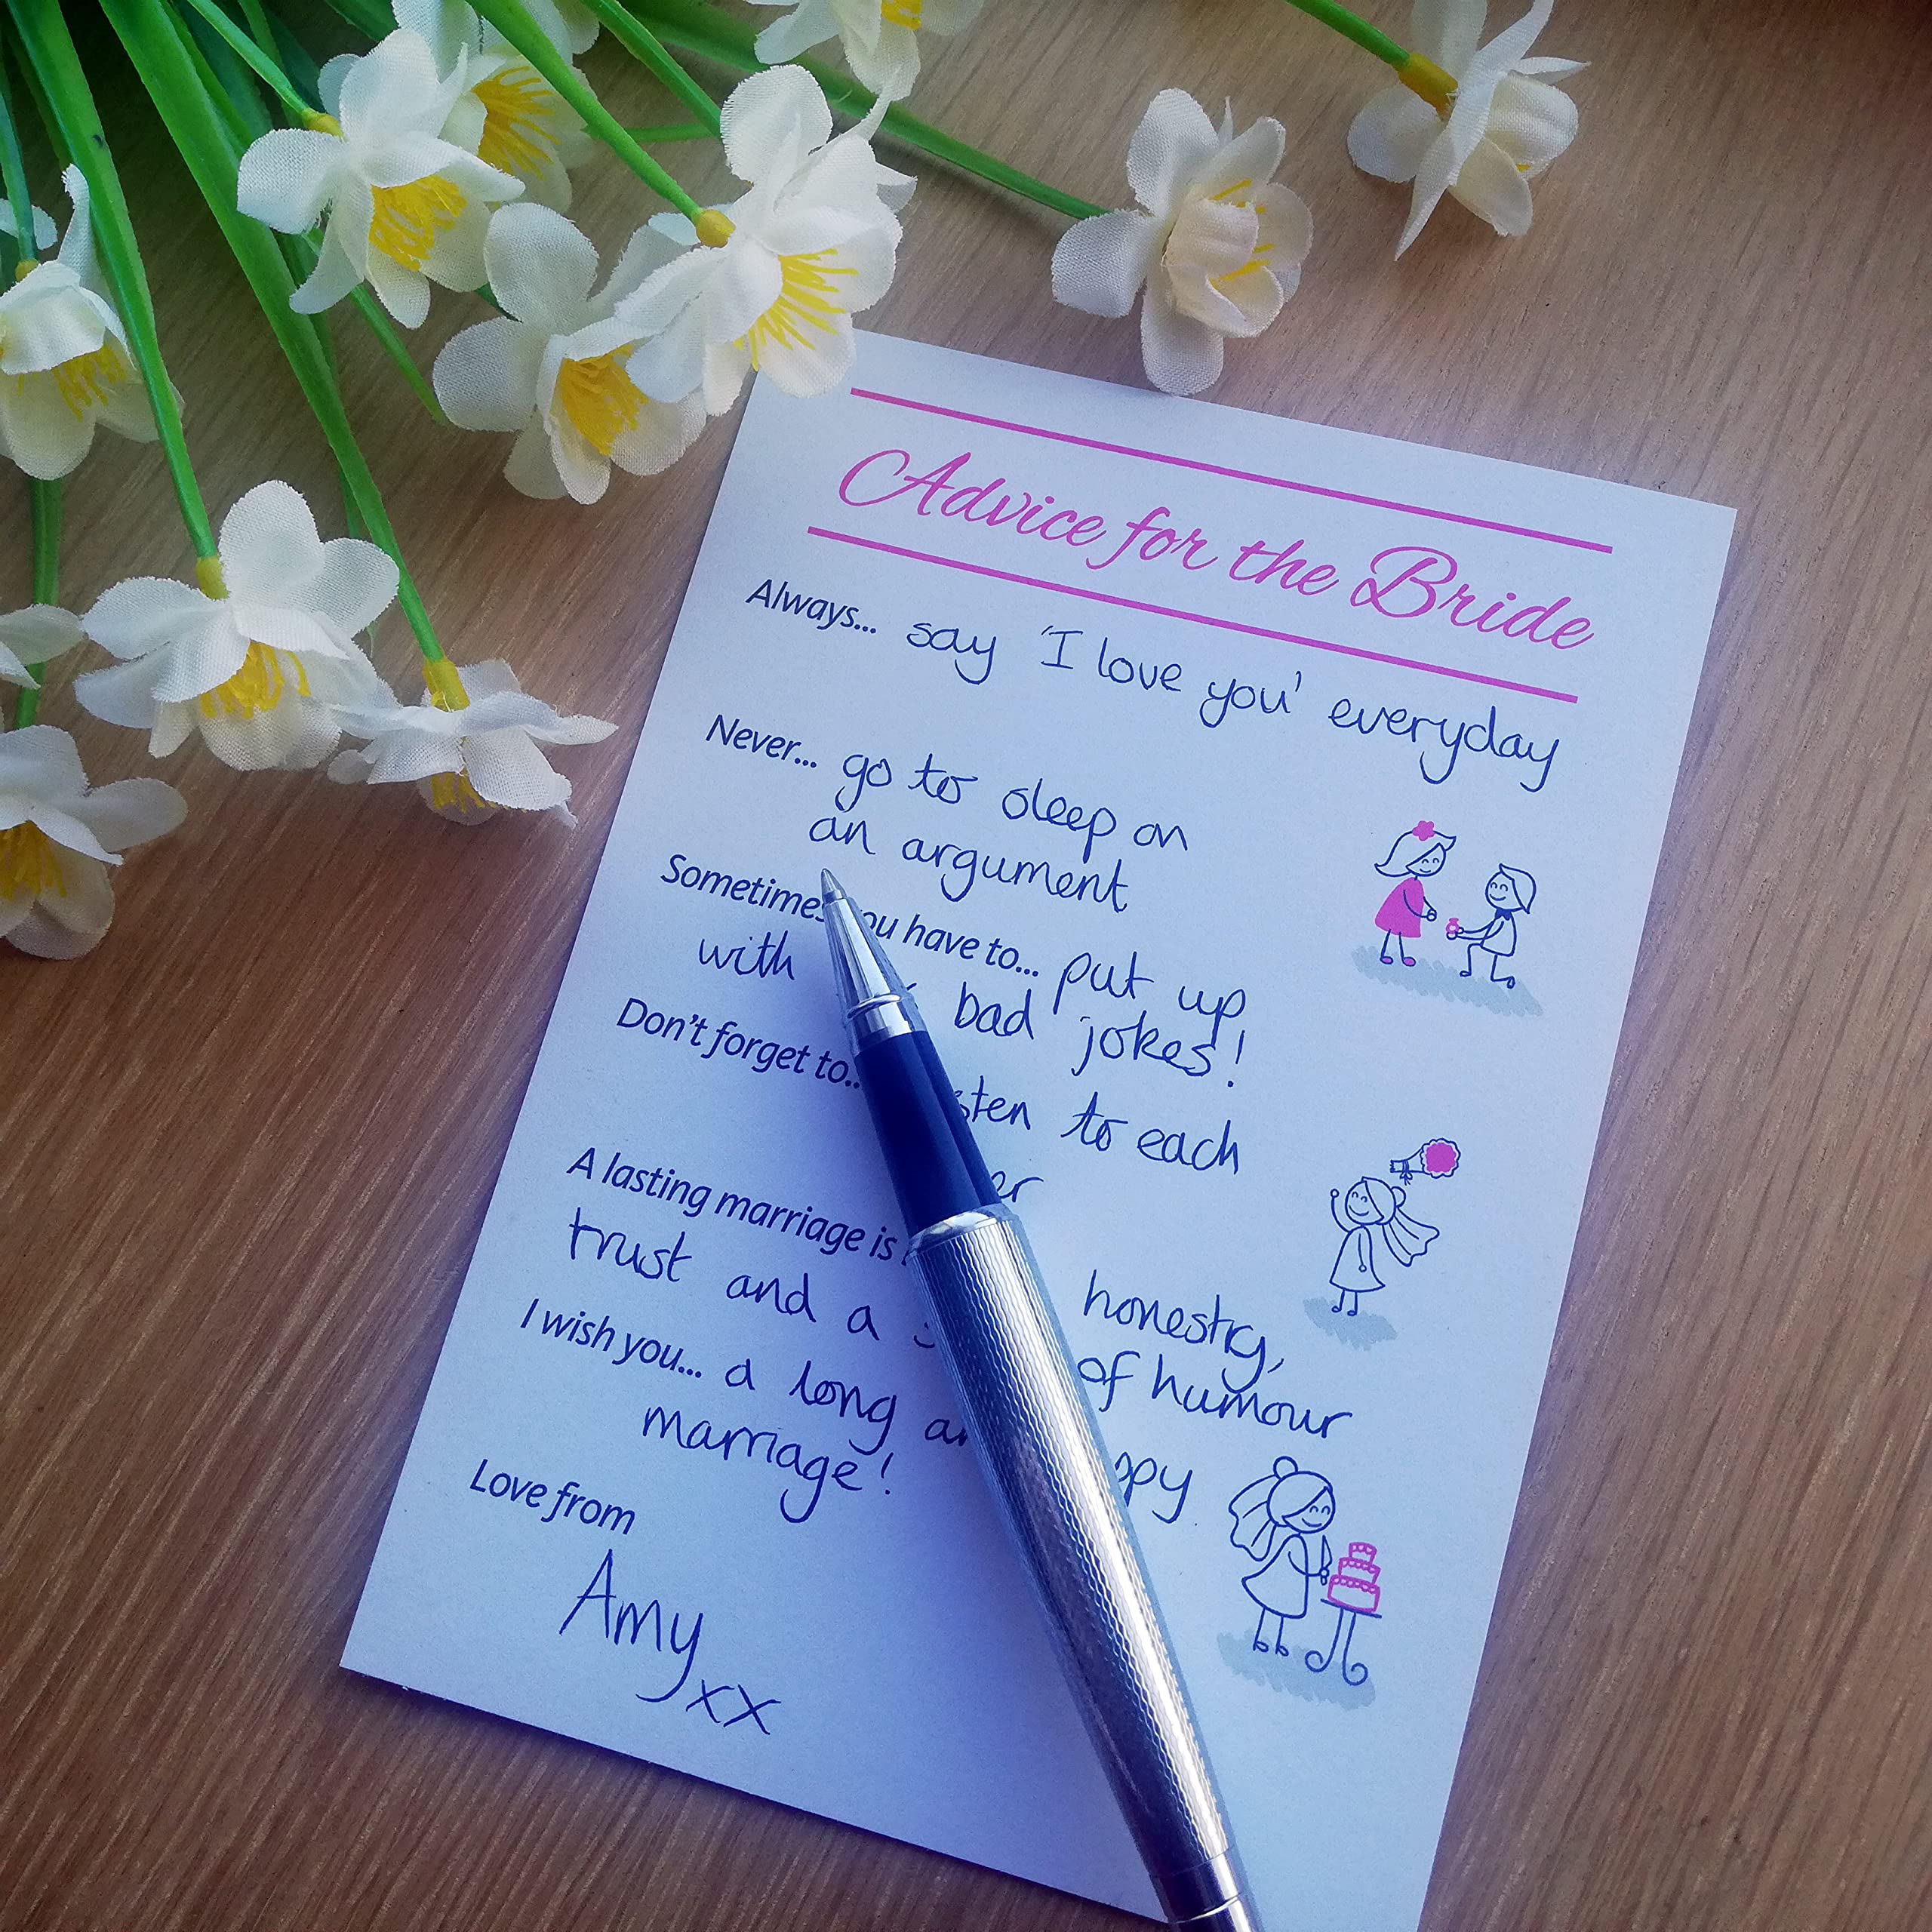 Advice for the Bride
Always... say 'I love you' everyday
Never... go to sleep on
an argument
Sometimes you have to... put up
with bad jokes!
Don't forget to... listen to each
A lasting marriage is honesty,
trust and a of humour
I wish you... a long and happy
marriage!
Love from
Amy xx